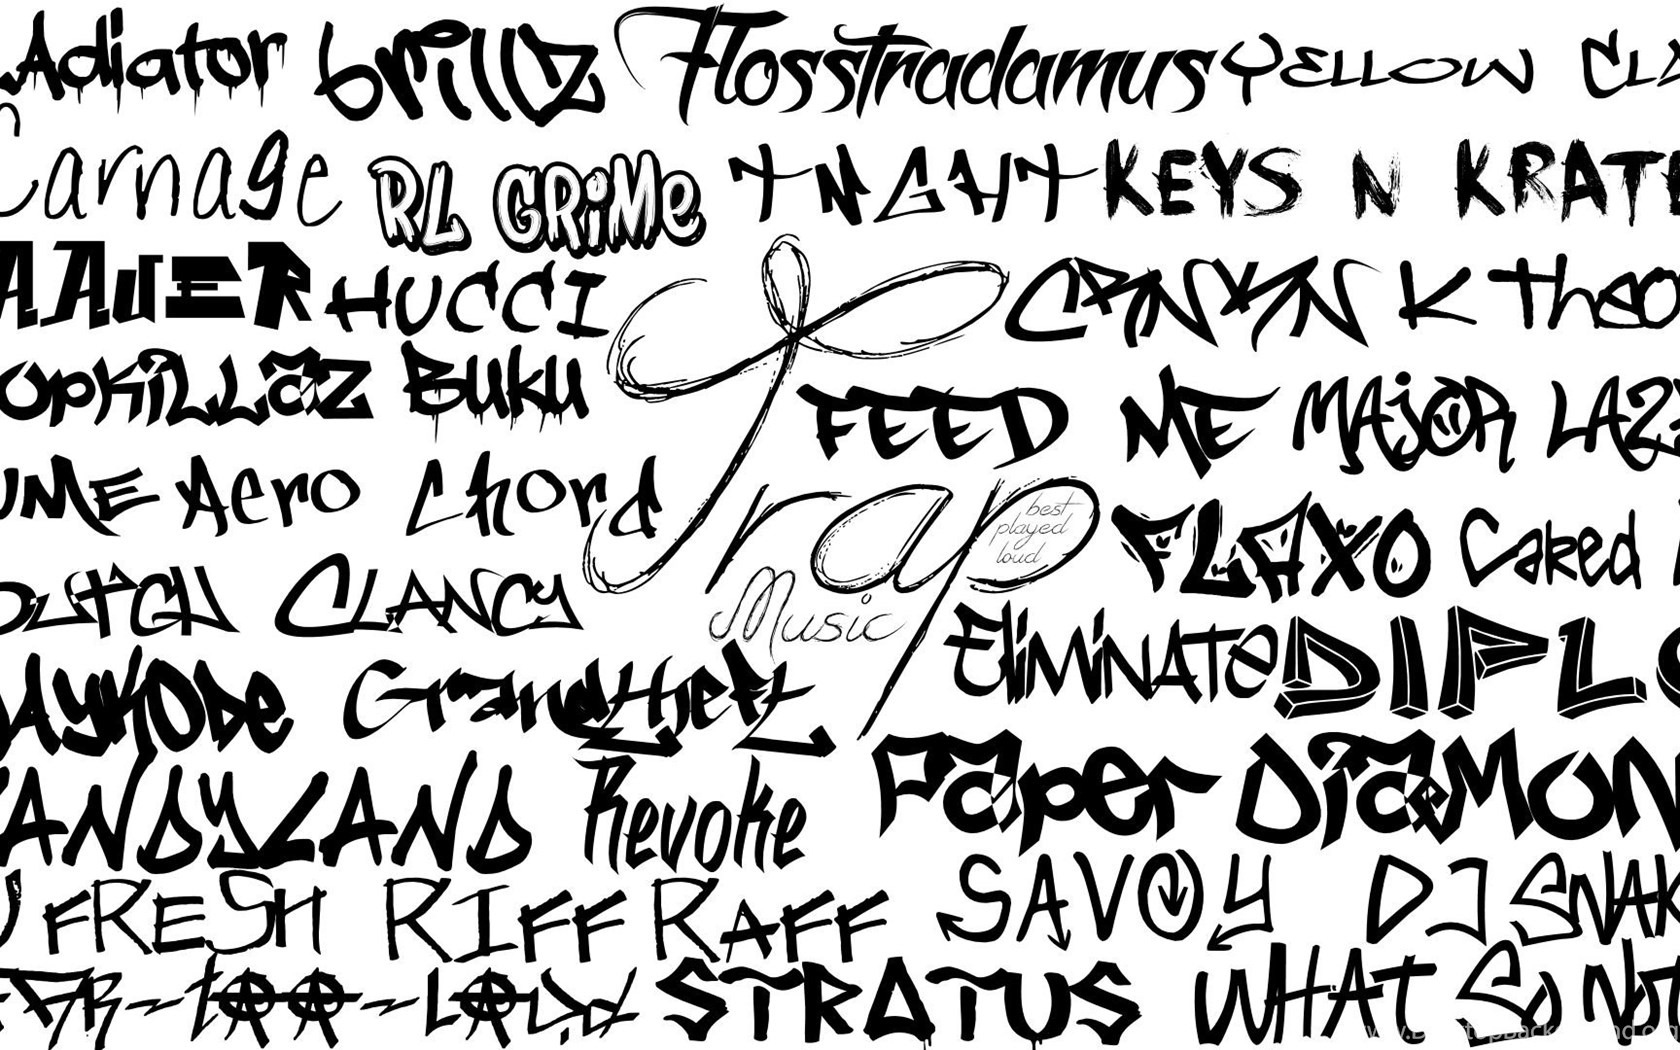 Adiator brillz Flosstradamus YELLOW CLA
Carnage RL GRiMe TNGHT KEYS N KRATE
AAUER HUCCI CRNKN K Theo
opKiLLaZ Buku FEED ME MAjOR LAZ
UME Aero Chord
Trap
Music
best
played
loud
FLAXO Caked
DUTCH CLANCY EliMiNATe DIPLO
AYKODe Grandtheft
ANDYLAND Revoke Paper DiaMON
U FRESH RIFF RAFF SAVOY DJ SNAK
STRATUS WHAT So NoT